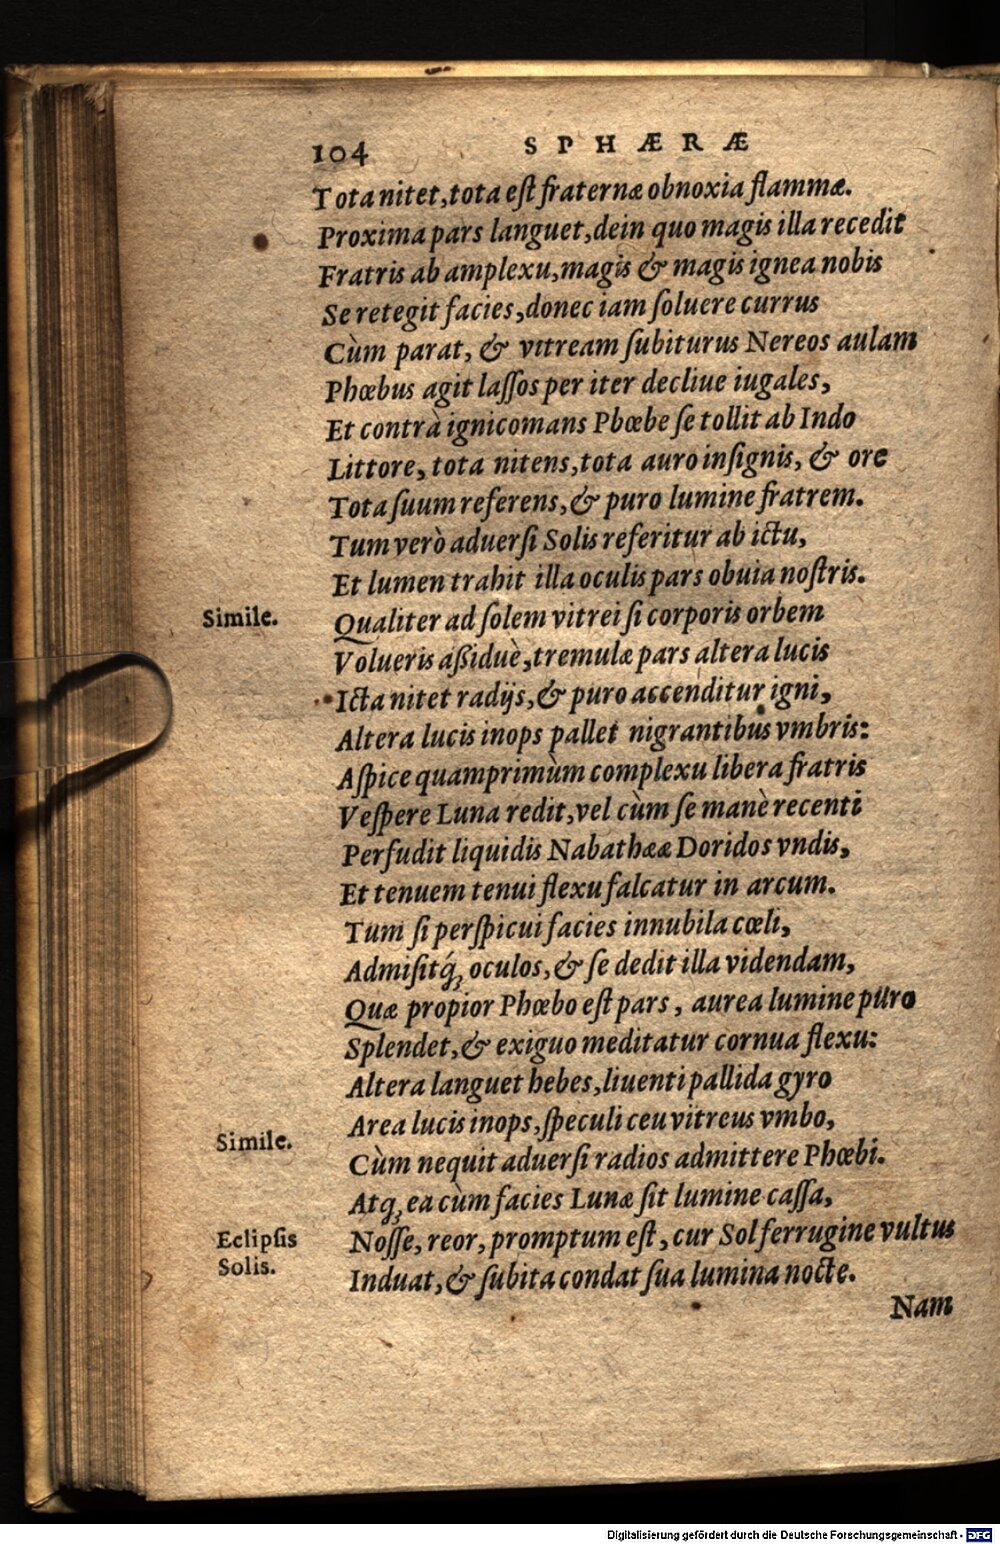 104 SPHÆRÆ
Tota nitet, tota est fraternæ obnoxia flammæ.
Proxima pars languet, dein quo magis illa recedit
Fratris ab amplexu, magis & magis ignea nobis
Se retegit facies, donec iam soluere currus
Cùm parat, & vitream subiturus Nereos aulam
Phœbus agit lassos per iter decliue iugales,
Et contrà ignicomans Phœbe se tollit ab Indo
Littore, tota nitens, tota auro insignis, & ore
Tota suum referens, & puro lumine fratrem.
Tum verò aduersi Solis referitur ab ictu,
Et lumen trahit illa oculis pars obuia nostris.
Simile. Qualiter ad solem vitrei si corporis orbem
Volueris aßiduè, tremulæ pars altera lucis
Icta nitet radijs, & puro accenditur igni,
Altera lucis inops pallet nigrantibus vmbris:
Aspice quamprimùm complexu libera fratris
Vespere Luna redit, vel cùm se manè recenti
Perfudit liquidis Nabathææ Doridos vndis,
Et tenuem tenui flexu falcatur in arcum.
Tum si perspicui facies innubila cœli,
Admisitq́; oculos, & se dedit illa videndam,
Quæ propior Phœbo est pars, aurea lumine puro
Splendet, & exiguo meditatur cornua flexu:
Altera languet hebes, liuenti pallida gyro
Area lucis inops, speculi ceu vitreus vmbo,
Simile. Cùm nequit aduersi radios admittere Phœbi.
Atq; ea cùm facies Lunæ sit lumine cassa,
Eclipsis Nosse, reor, promptum est, cur Sol ferrugine vultus
Solis. Induat, & subita condat sua lumina nocte.
Nam
Digitalisierung gefördert durch die Deutsche Forschungsgemeinschaft - DFG